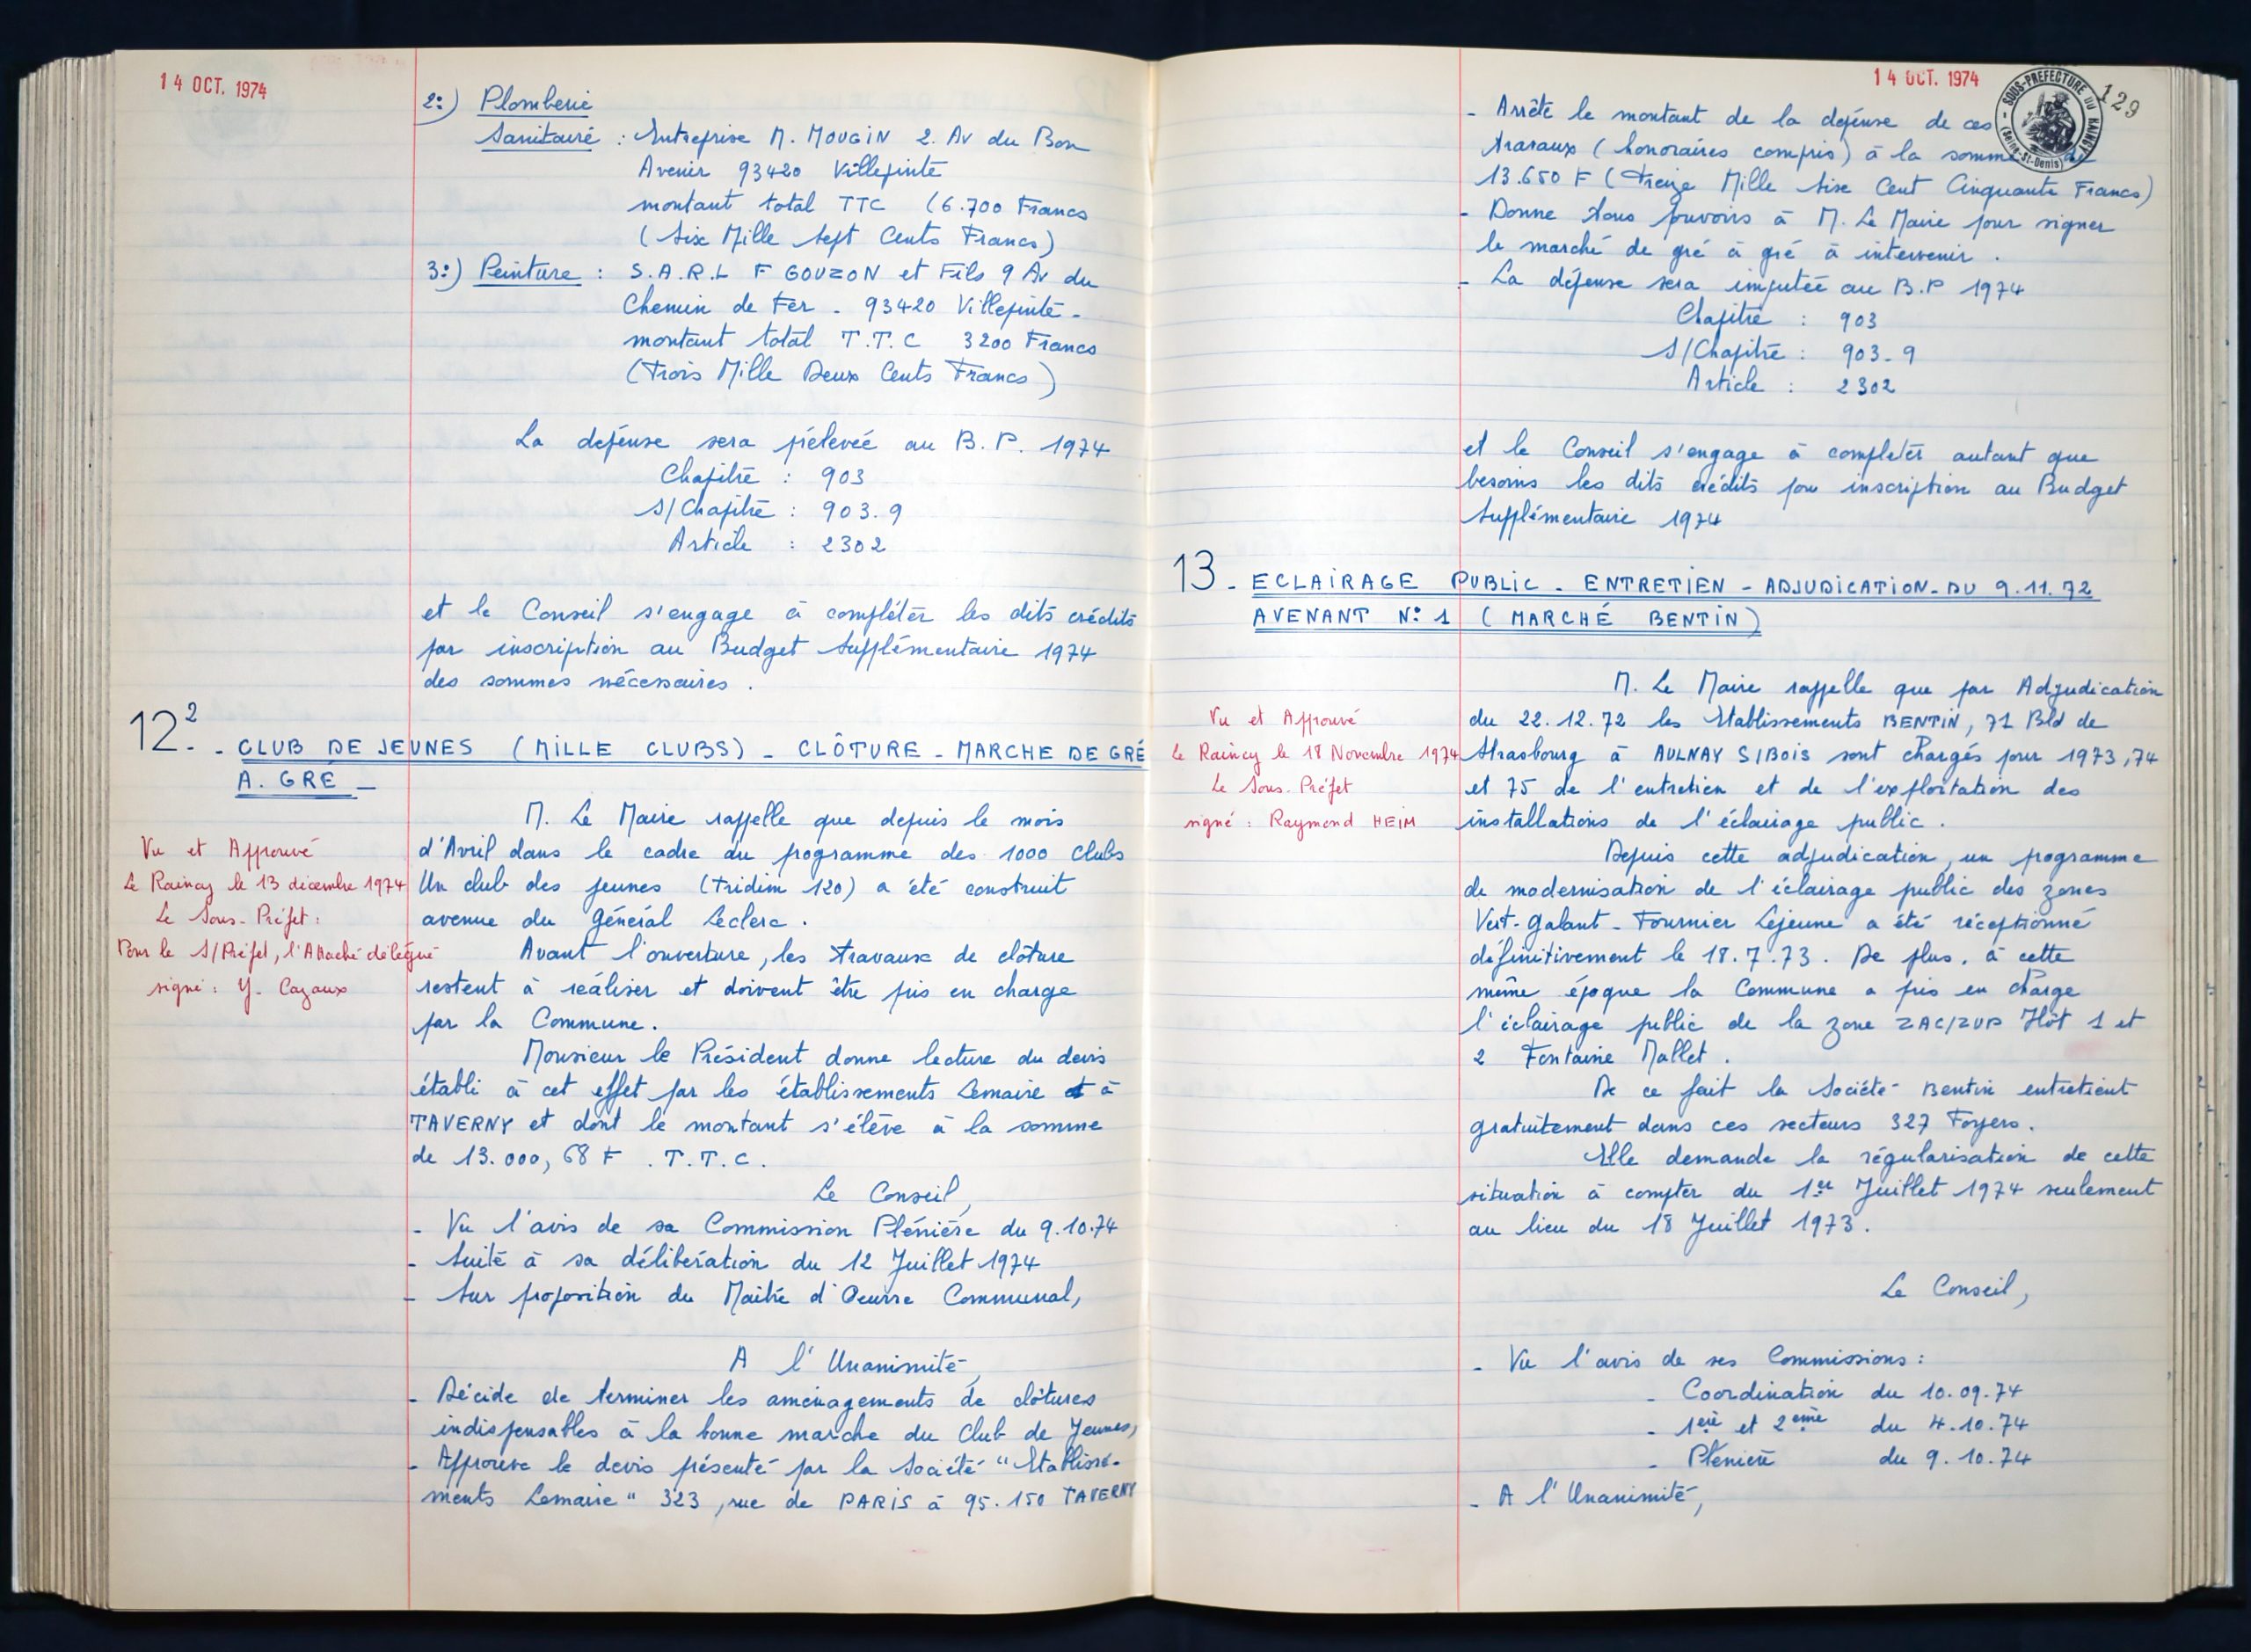 14 OCT. 1974
2:) Plomberie
Sanitaire : Entreprise M. MOUGIN 2. Av du Bon
Avenir 93420 Villepinte
montant total TTC (6.700 Francs
(Six Mille Sept Cents Francs)
3:) Peinture : S.A.R.L F GOUZON et Fils 9 Av du
Chemin de Fer - 93420 Villepinte -
montant total T.T.C 3200 Francs
(Trois Mille Deux Cents Francs)
La dépense sera prélevée au B.P. 1974
Chapitre : 903
S/Chapitre : 903.9
Article : 2302
et le Conseil s'engage à compléter les dits crédits
par inscription au Budget Supplémentaire 1974
des sommes nécessaires.
12.² - CLUB DE JEUNES (MILLE CLUBS) - CLÔTURE - MARCHE DE GRÉ
A. GRÉ -
M. Le Maire rappelle que depuis le mois
d'Avril dans le cadre du programme des 1000 clubs
Un club des jeunes (Tridim 120) a été construit
avenue du Général Leclerc.
Vu et Approuvé
Le Raincy le 13 décembre 1974
Le Sous-Préfet :
Pour le S/Préfet, l'Attaché délégué
signé : Y. Cazaux
Avant l'ouverture, les travaux de clôture
restent à réaliser et doivent être pris en charge
par la Commune.
Monsieur le Président donne lecture du devis
établi à cet effet par les établissements Lemaire à
TAVERNY et dont le montant s'élève à la somme
de 13.000,68 F . T.T.C.
Le Conseil,
- Vu l'avis de sa Commission Plénière du 9.10.74
- Suite à sa délibération du 12 Juillet 1974
- Sur proposition du Maître d'Oeuvre Communal,
A l'Unanimité,
- Décide de terminer les aménagements de clôtures
indispensables à la bonne marche du Club de Jeunes,
- Approuve le devis présenté par la Société "Etablisse-
ments Lemaire" 323, rue de PARIS à 95.150 TAVERNY
14 OCT. 1974
SOUS-PREFECTURE DU RAINCY
(Seine-St-Denis)
129
- Arrête le montant de la dépense de ces
travaux (honoraires compris) à la somme de
13.650 F (Treize Mille Six Cent Cinquante Francs)
- Donne tous pouvoirs à M. Le Maire pour signer
le marché de gré à gré à intervenir.
- La dépense sera imputée au B.P 1974
Chapitre : 903
S/Chapitre : 903-9
Article : 2302
et le Conseil s'engage à compléter autant que
besoins les dits crédits par inscription au Budget
Supplémentaire 1974
13 - ECLAIRAGE PUBLIC - ENTRETIEN - ADJUDICATION - DU 9.11.72
AVENANT N: 1 (MARCHÉ BENTIN)
M. Le Maire rappelle que par Adjudication
du 22.12.72 les Etablissements BENTIN, 71 Bld de
Strasbourg à AULNAY S/BOIS sont chargés pour 1973,74
et 75 de l'entretien et de l'exploitation des
installations de l'éclairage public.
Vu et Approuvé
Le Raincy le 18 Novembre 1974
Le Sous-Préfet
signé : Raymond HEIM
Depuis cette adjudication, un programme
de modernisation de l'éclairage public des zones
Vert-Galant - Fournier Lejeune a été réceptionné
définitivement le 18.7.73. De plus, à cette
même époque la Commune a pris en charge
l'éclairage public de la zone ZAC/ZUP Ilôt 1 et
2 Fontaine Mallet.
De ce fait la Société Bentin entretient
gratuitement dans ces secteurs 327 Foyers.
Elle demande la régularisation de cette
situation à compter du 1er Juillet 1974 seulement
au lieu du 18 Juillet 1973.
Le Conseil,
- Vu l'avis de ses Commissions :
- Coordination du 10.09.74
- 1ère et 2ème du 4.10.74
- Plénière du 9.10.74
- A l'Unanimité,